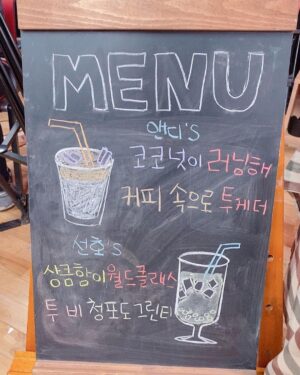 MENU
앤디's
코코넛이 러닝해
커피 속으로 투게더
선호's
상큼함이 월드클래스
투 비 청포도 그린티